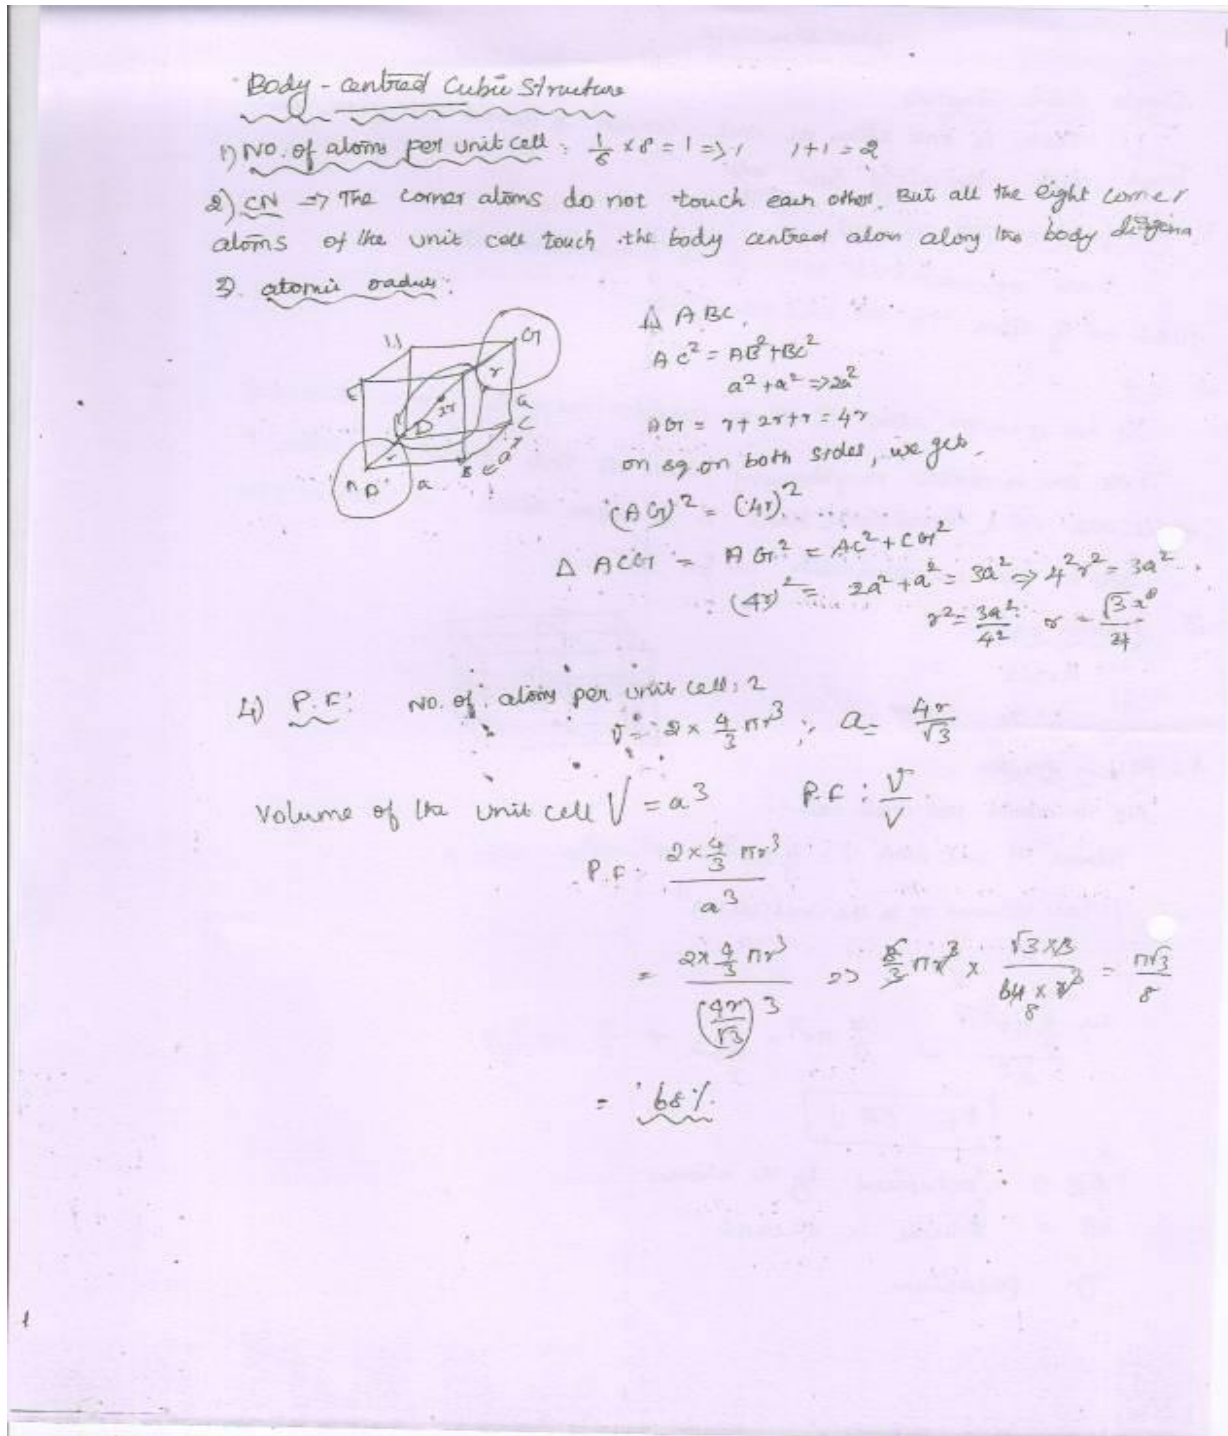 Body - centred Cubic Structure
1) No. of atoms per unit cell : 1/8 x 8 = 1 => 1 1+1 = 2
2) CN => The corner atoms do not touch each other. But all the eight corner
atoms of the unit cell touch the body centred atom along the body
3) atomic radius:
G
r
E
2r
a
D
C
B
a
A
a
Δ ABC,
AC² = AB² + BC²
a² + a² => 2a²
AG = r + 2r + r = 4r
on sq on both sides, we get,
(AG)² = (4r)²
Δ ACG = AG² = AC² + CG²
(4r)² = 2a² + a² = 3a² => 4²r² = 3a²
r² = 3a²/4²
4) P.F: No. of atoms per unit cell: 2
v = 2 x 4/3 πr³ ; a = 4r/√3
Volume of the unit cell V = a³ P.F : v/V
P.F : 2 x 4/3 πr³ / a³
= 2 x 4/3 πr³ / (4r/√3)³ => 8/3 πr³ x √3 x 3 / 64 x r³ 8 = π√3/8
= 68%
1